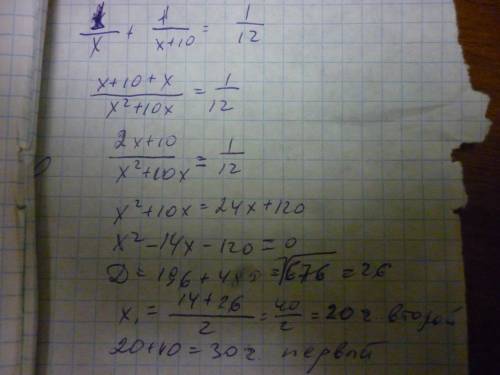 1/x + 1/x+10 = 1/12
x+10+x/x²+10x = 1/12
2x+10/x²+10x = 1/12
x²+10x = 24x+120
x²-14x-120=0
D = 196+480 = √676 = 26
x₁ = 14+26/2 = 40/2 = 20 ч. второй
20+10=30ч. первый